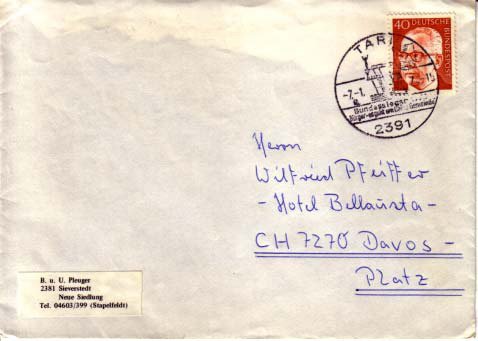 40
DEUTSCHE
BUNDESPOST
TARP
-7.-1.
Bundessieger
2391
Herrn
Wilfried Pfeiffer
- Hotel Bellavista -
CH 7270 Davos -
Platz
B. u. U. Pleuger
2381 Sieverstedt
Neue Siedlung
Tel. 04603/399 (Stapelfeldt)